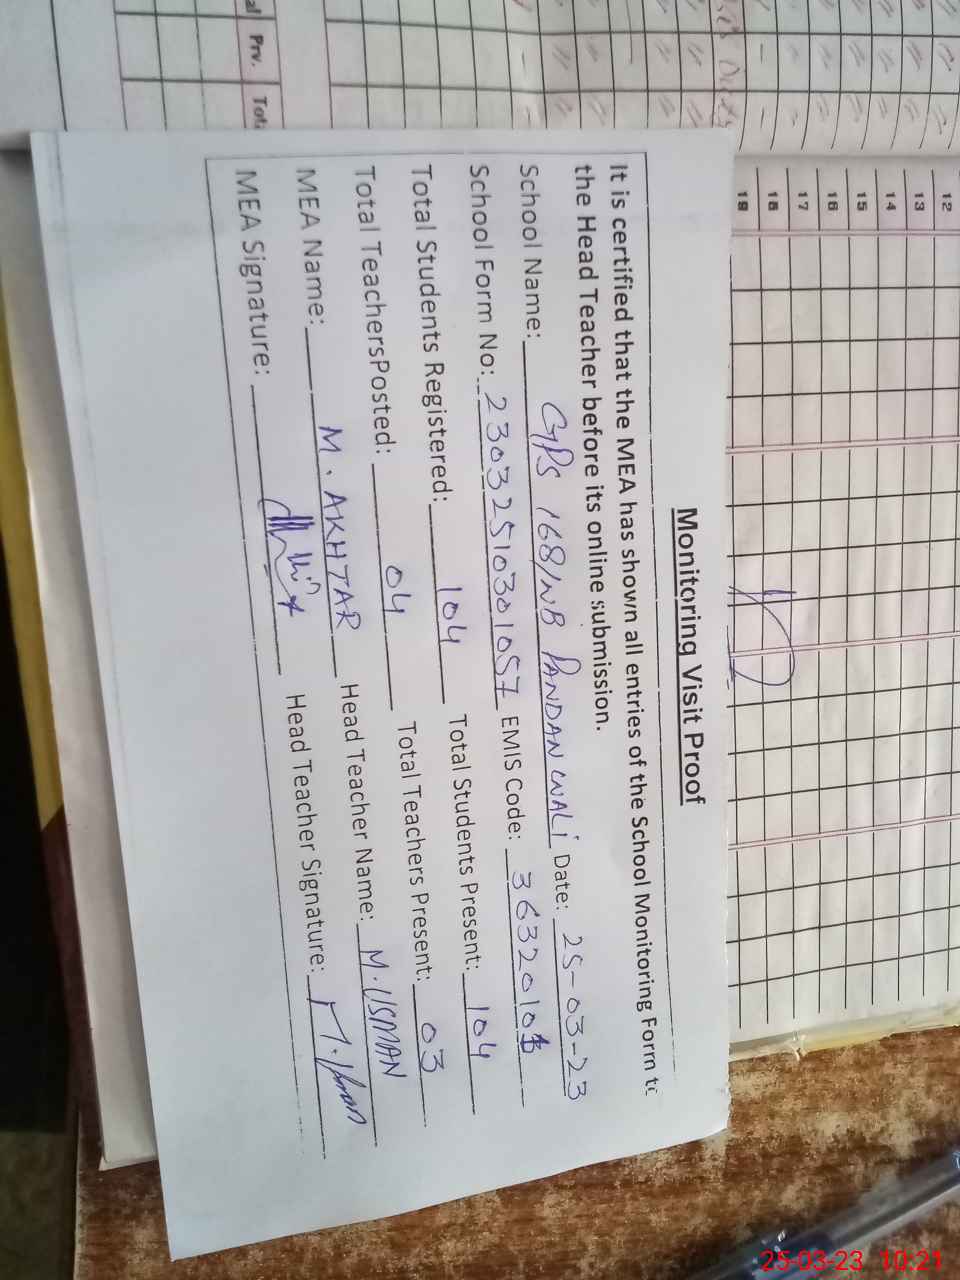 al Prv. Tot
12
13
14
15
16
17
18
19
Monitoring Visit Proof
It is certified that the MEA has shown all entries of the School Monitoring Form to
the Head Teacher before its online submission.
School Name: GPS 168/NB PANDAN WALI Date: 25-03-23
School Form No: 23032510301057 EMIS Code: 3632010
Total Students Registered: 104 Total Students Present: 104
Total TeachersPosted: 04 Total Teachers Present: 03
MEA Name: M. AKHTAR Head Teacher Name: M. USMAN
MEA Signature: Head Teacher Signature:
25-03-23 10:21